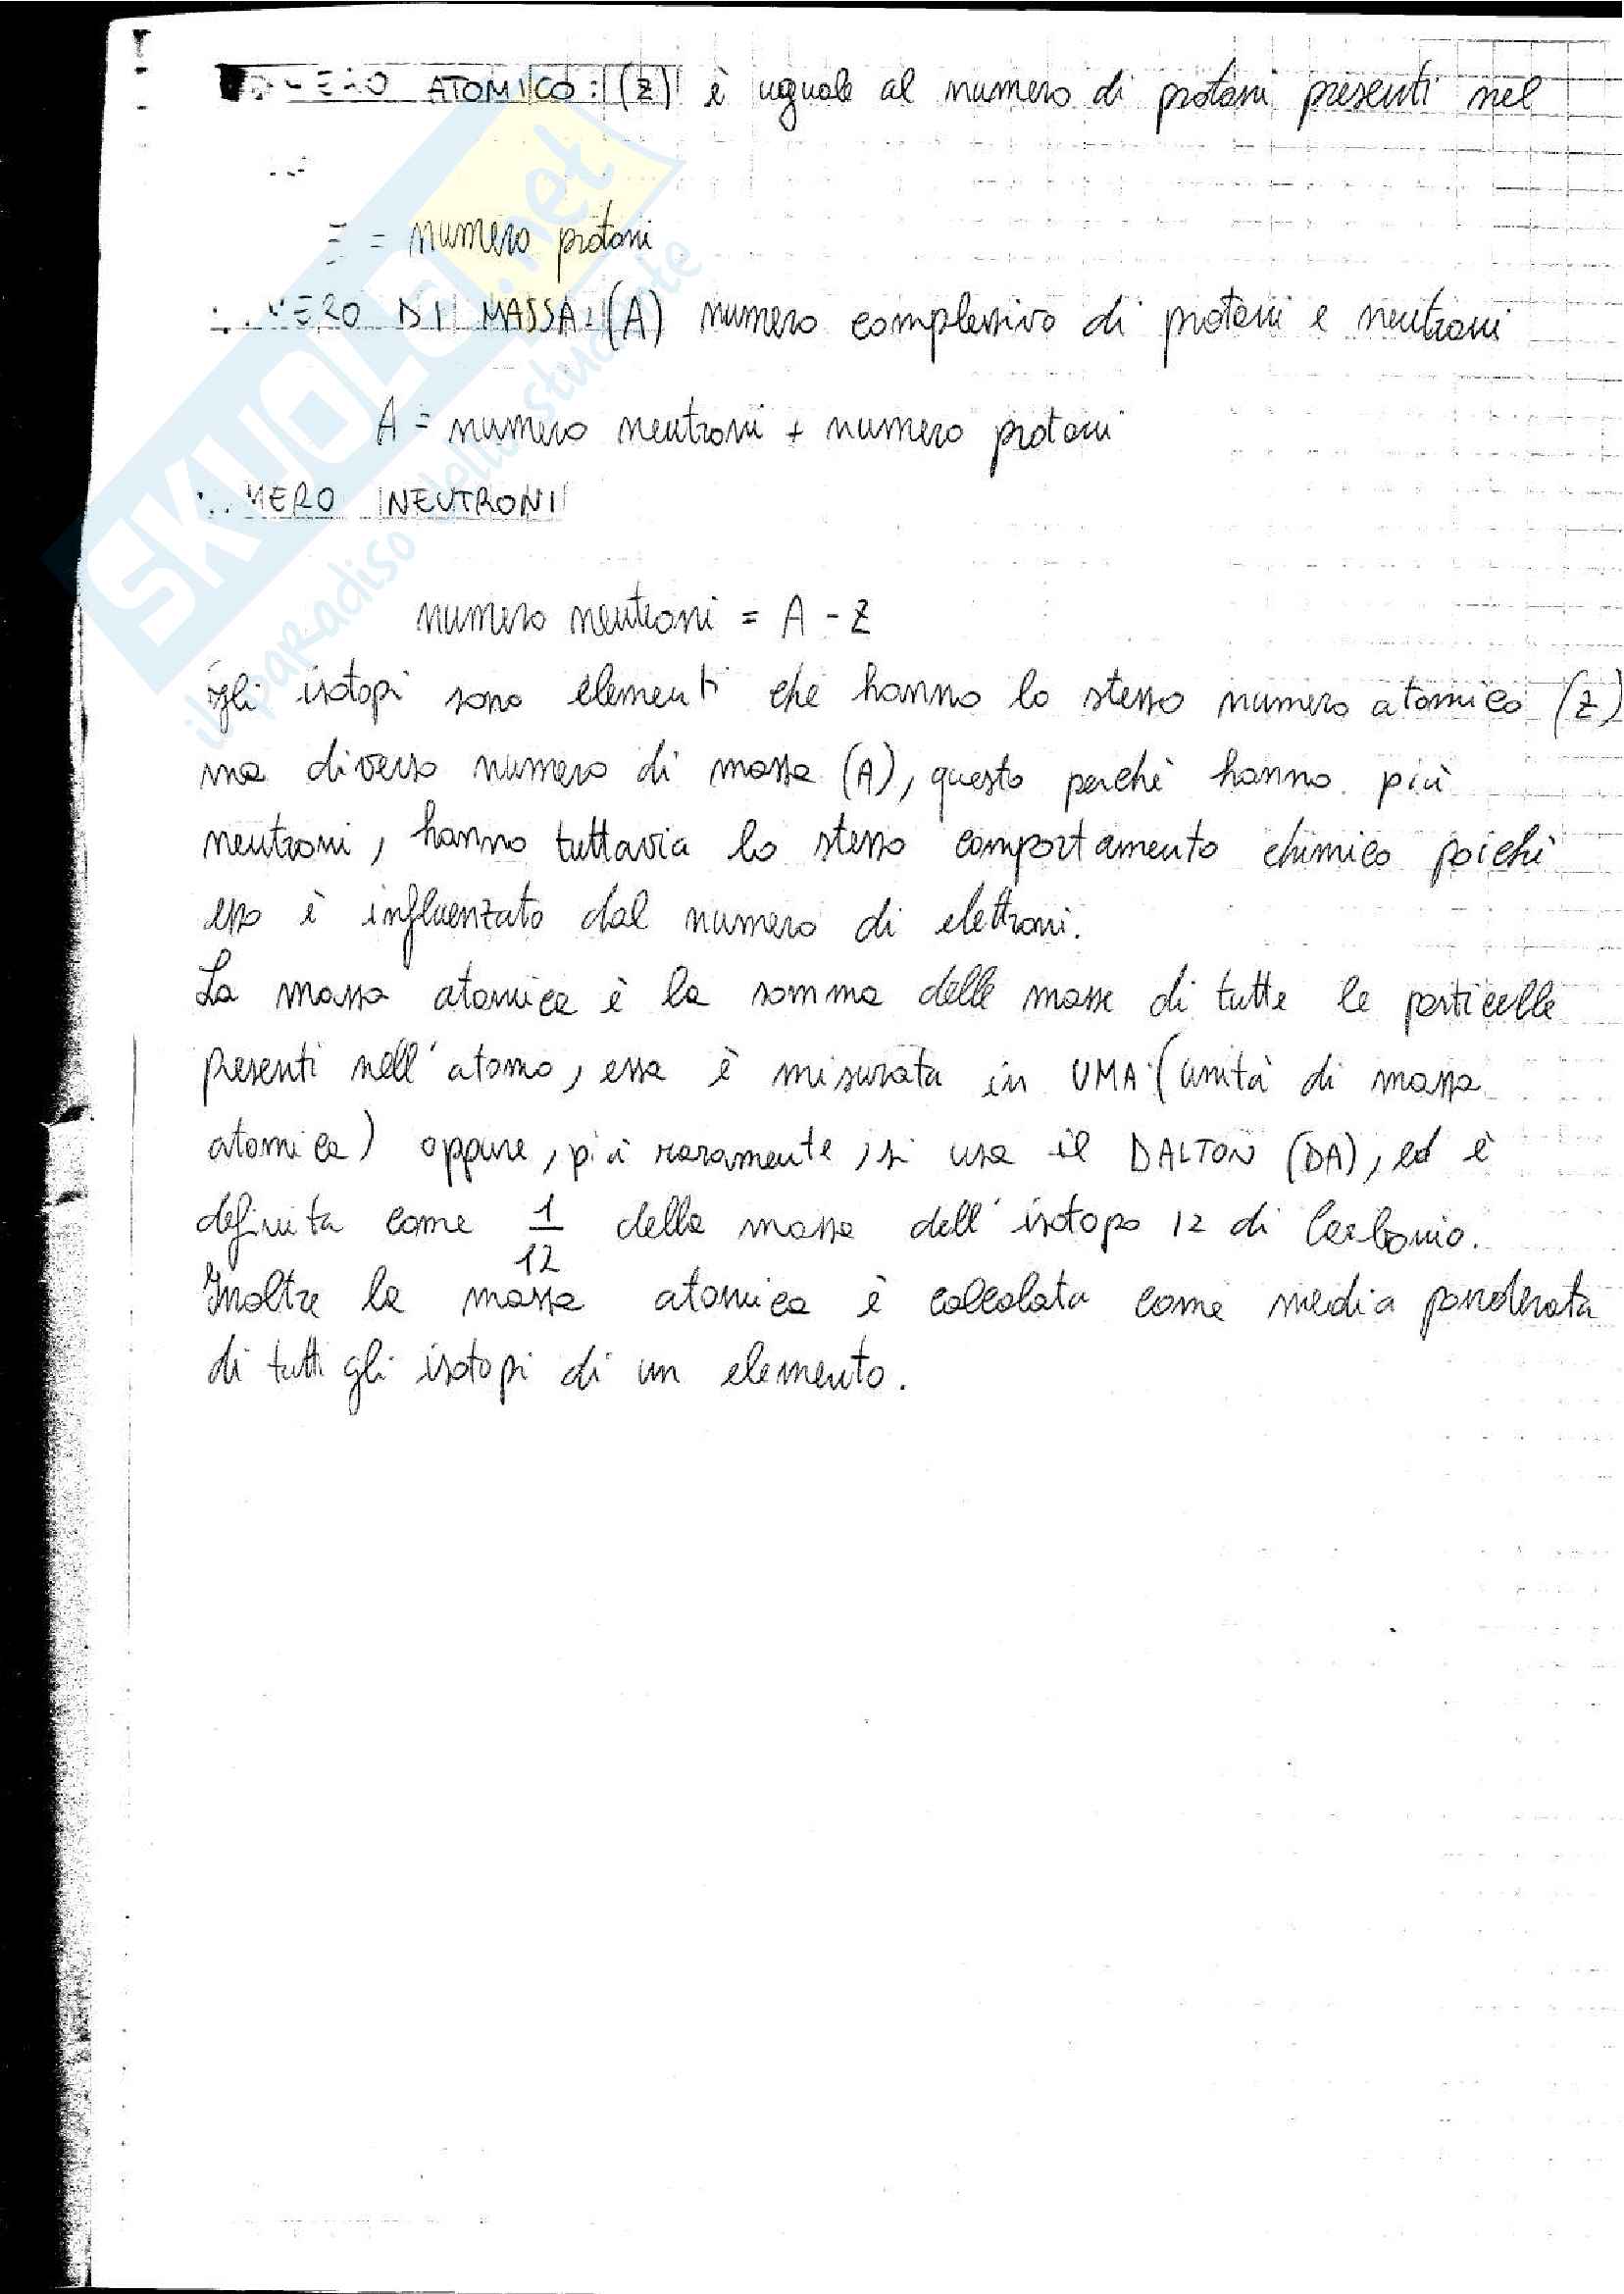 ATOMICO: (Z) è uguale al numero di protoni presenti nel
= numero protoni
DI MASSA: (A) numero complessivo di protoni e neutroni
A = numero neutroni + numero protoni
NEUTRONI
numero neutroni = A - Z
gli isotopi sono elementi che hanno lo stesso numero atomico (Z)
ma diverso numero di massa (A), questo perchè hanno più
neutroni, hanno tuttavia lo stesso comportamento chimico poichè
esso è influenzato dal numero di elettroni.
La massa atomica è la somma delle masse di tutte le particelle
presenti nell'atomo, essa è misurata in UMA (unità di massa
atomica) oppure, più raramente, si usa il DALTON (DA), ed è
definita come 1/12 della massa dell'isotopo 12 di Carbonio.
Inoltre la massa atomica è calcolata come media ponderata
di tutti gli isotopi di un elemento.
SKUOLA.net
il paradiso dello studente